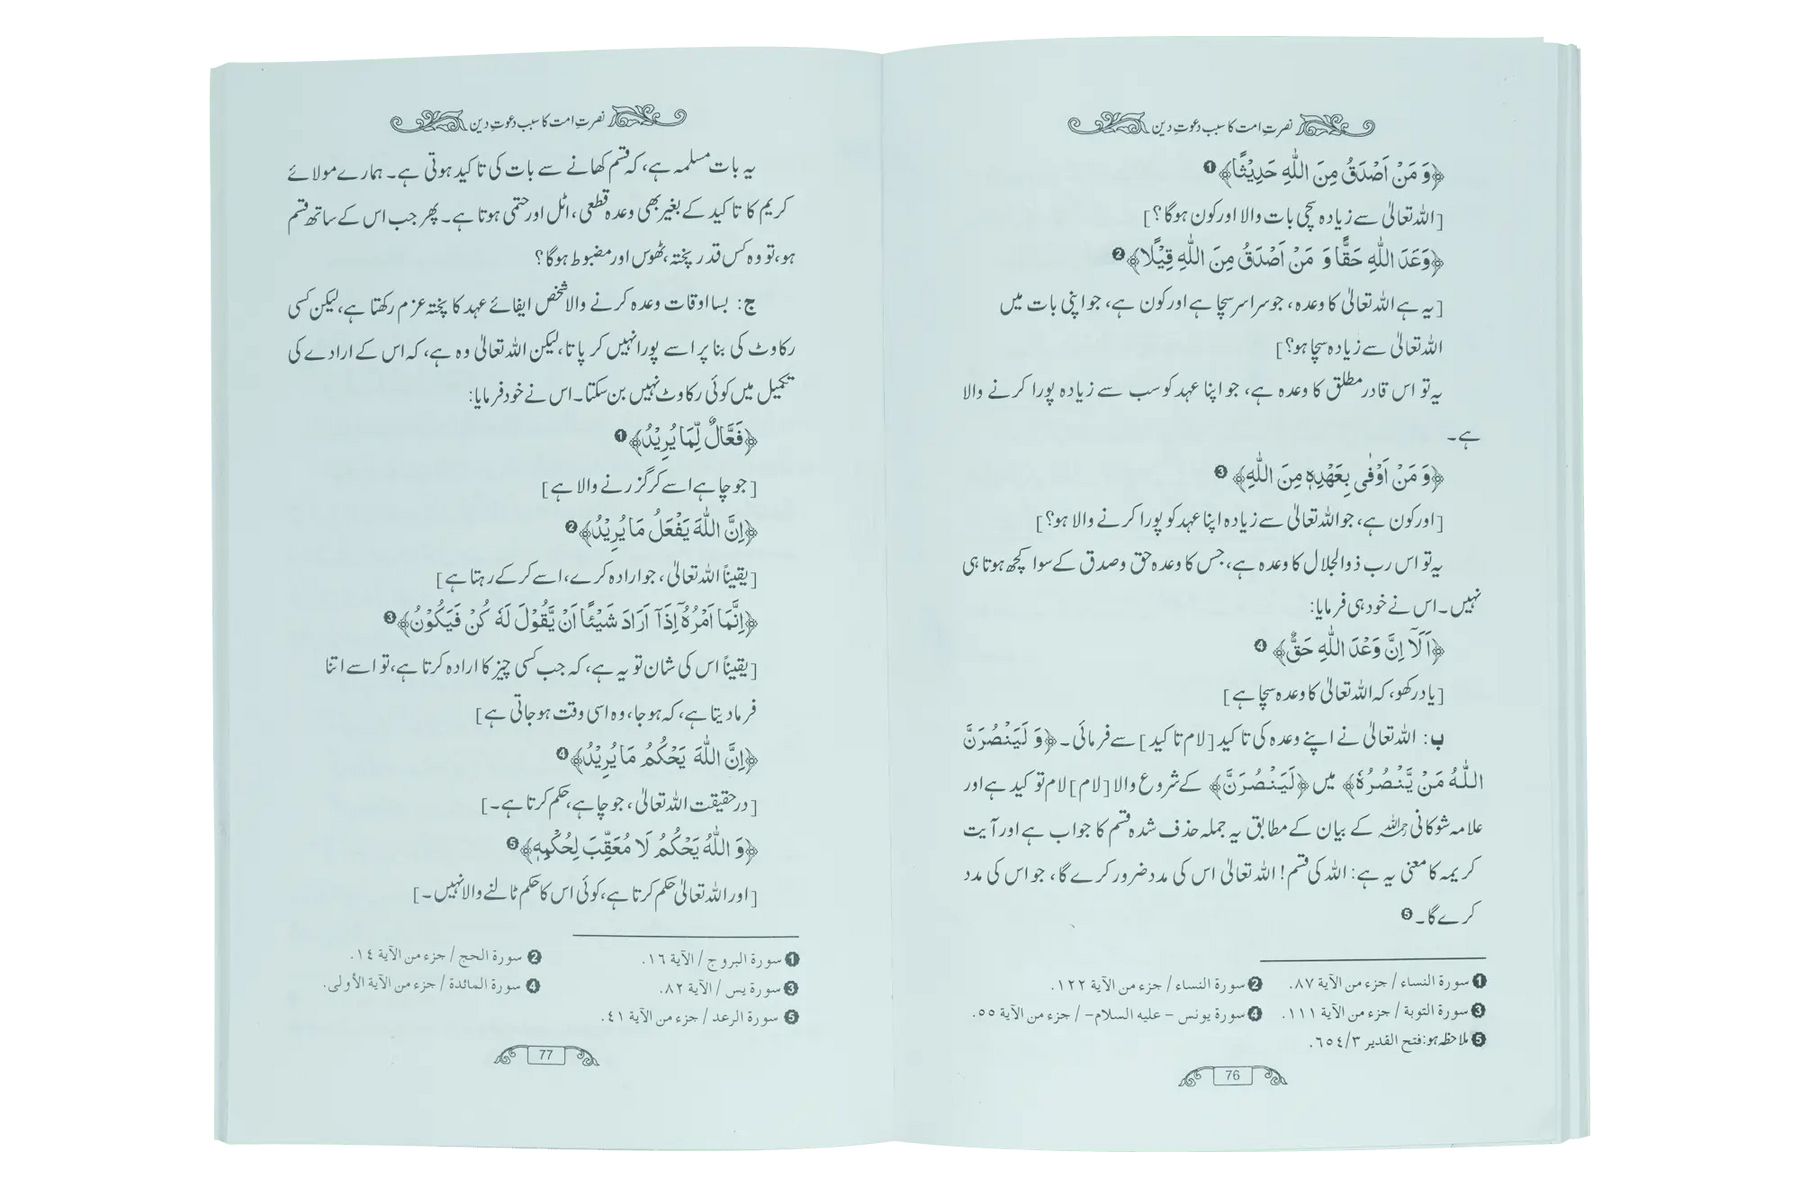 نصرتِ امت کا سبب دعوتِ دین
﴿وَ مَنْ اَصْدَقُ مِنَ اللّٰهِ حَدِیْثًا﴾ ❶
[اللہ تعالیٰ سے زیادہ سچی بات والا اور کون ہوگا؟]
﴿وَعَدَ اللّٰهِ حَقًّا وَ مَنْ اَصْدَقُ مِنَ اللّٰهِ قِیْلًا﴾ ❷
[یہ ہے اللہ تعالیٰ کا وعدہ، جو سراسر سچا ہے اور کون ہے، جو اپنی بات میں
اللہ تعالیٰ سے زیادہ سچا ہو؟]
یہ تو اس قادر مطلق کا وعدہ ہے، جو اپنا عہد کو سب سے زیادہ پورا کرنے والا
ہے۔
﴿وَ مَنْ اَوْفٰی بِعَهْدِهٖ مِنَ اللّٰهِ﴾ ❸
[اور کون ہے، جو اللہ تعالیٰ سے زیادہ اپنا عہد کو پورا کرنے والا ہو؟]
یہ تو اس رب ذوالجلال کا وعدہ ہے، جس کا وعدہ حق و صدق کے سوا کچھ ہوتا ہی
نہیں۔ اس نے خود ہی فرمایا:
﴿اَلَآ اِنَّ وَعْدَ اللّٰهِ حَقٌّ﴾ ❹
[یاد رکھو، کہ اللہ تعالیٰ کا وعدہ سچا ہے]
ب: اللہ تعالیٰ نے اپنے وعدہ کی تاکید [لام تاکید] سے فرمائی۔ ﴿وَ لَیَنْصُرَنَّ
اللّٰهُ مَنْ یَّنْصُرُهٗ﴾ میں ﴿لَیَنْصُرَنَّ﴾ کے شروع والا [لام] لام توکید ہے اور
علامہ شوکانی رحمہ اللہ کے بیان کے مطابق یہ جملہ حذف شدہ قسم کا جواب ہے اور آیت
کریمہ کا معنی یہ ہے: اللہ کی قسم! اللہ تعالیٰ اس کی مدد ضرور کرے گا، جو اس کی مدد
کرے گا۔ ❺
❶ سورة النساء / جزء من الآية ٨٧. ❷ سورة النساء / جزء من الآية ١٢٢.
❸ سورة التوبة / جزء من الآية ١١١. ❹ سورة يونس – عليه السلام – / جزء من الآية ٥٥.
❺ ملاحظہ ہو: فتح القدير ٦٥٤/٣.
76
نصرتِ امت کا سبب دعوتِ دین
یہ بات مسلمہ ہے، کہ قسم کھانے سے بات کی تاکید ہوتی ہے۔ ہمارے مولائے
کریم کا تاکید کے بغیر بھی وعدہ قطعی، اٹل اور حتمی ہوتا ہے۔ پھر جب اس کے ساتھ قسم
ہو، تو وہ کس قدر پختہ، ٹھوس اور مضبوط ہوگا؟
ج: بسا اوقات وعدہ کرنے والا شخص ایفائے عہد کا پختہ عزم رکھتا ہے، لیکن کسی
رکاوٹ کی بنا پر اسے پورا نہیں کر پاتا، لیکن اللہ تعالیٰ وہ ہے، کہ اس کے ارادے کی
تکمیل میں کوئی رکاوٹ نہیں بن سکتا۔ اس نے خود فرمایا:
﴿فَعَّالٌ لِّمَا یُرِیْدُ﴾ ❶
[جو چاہے اسے کر گزرنے والا ہے]
﴿اِنَّ اللّٰهَ یَفْعَلُ مَا یُرِیْدُ﴾ ❷
[یقیناً اللہ تعالیٰ، جو ارادہ کرے، اسے کر کے رہتا ہے]
﴿اِنَّمَا اَمْرُهٗٓ اِذَآ اَرَادَ شَیْئًا اَنْ یَّقُوْلَ لَهٗ كُنْ فَیَكُوْنُ﴾ ❸
[یقیناً اس کی شان تو یہ ہے، کہ جب کسی چیز کا ارادہ کرتا ہے، تو اسے اتنا
فرما دیتا ہے، کہ ہو جا، وہ اسی وقت ہو جاتی ہے]
﴿اِنَّ اللّٰهَ یَحْكُمُ مَا یُرِیْدُ﴾ ❹
[درحقیقت اللہ تعالیٰ، جو چاہے، حکم کرتا ہے۔]
﴿وَ اللّٰهُ یَحْكُمُ لَا مُعَقِّبَ لِحُكْمِهٖ﴾ ❺
[اور اللہ تعالیٰ حکم کرتا ہے، کوئی اس کا حکم ٹالنے والا نہیں۔]
❶ سورة البروج / الآية ١٦. ❷ سورة الحج / جزء من الآية ١٤.
❸ سورة يس / الآية ٨٢. ❹ سورة المائدة / جزء من الآية الأولى.
❺ سورة الرعد / جزء من الآية ٤١.
77